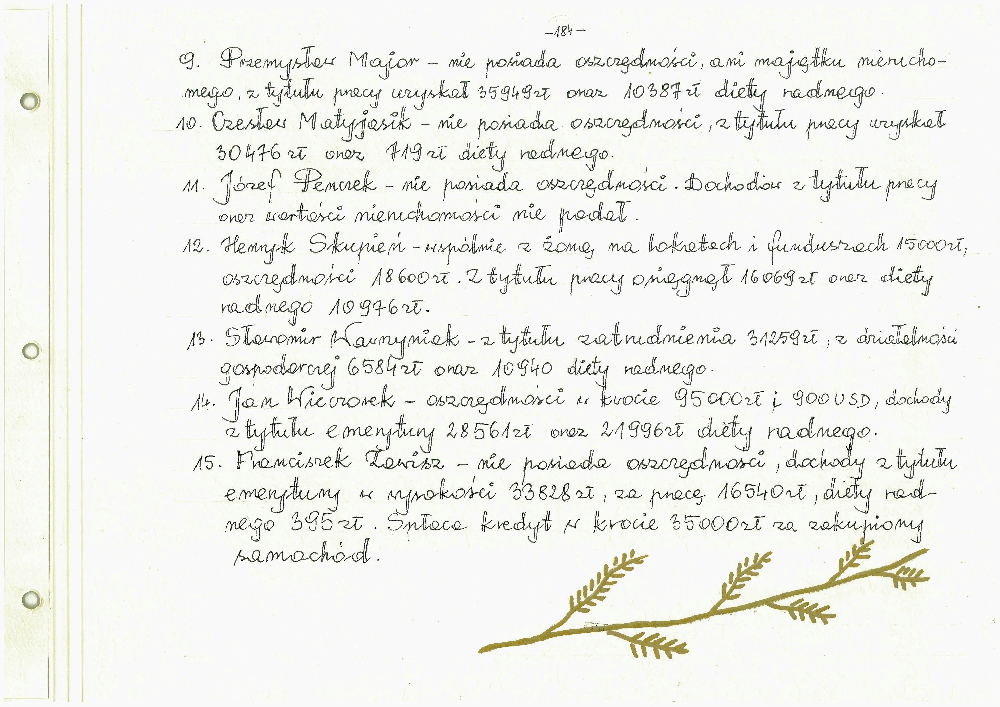 -184-
9. Przemysław Major - nie posiada oszczędności, ani majątku nierucho-
mego, z tytułu pracy uzyskał 35949zł oraz 10387zł diety radnego.
10. Czesław Matyjasik - nie posiada oszczędności, z tytułu pracy uzyskał
30476 zł oraz 719 zł diety radnego.
11. Józef Penczek - nie posiada oszczędności. Dochodów z tytułu pracy
oraz wartości nieruchomości nie podał.
12. Henryk Skupień - wspólnie z żoną na lokatach i funduszach 15000zł,
oszczędności 18600zł. Z tytułu pracy osiągnął 16069zł oraz diety
radnego 10976zł.
13. Sławomir Wawrzyniak - z tytułu zatrudnienia 31259zł, z działalności
gospodarczej 6584zł oraz 10940 diety radnego.
14. Jan Wieczorek - oszczędności w kwocie 95000zł i 900USD, dochody
z tytułu emerytury 28561zł oraz 21996zł diety radnego.
15. Franciszek Zawisz - nie posiada oszczędności, dochody z tytułu
emerytury w wysokości 33828zł, za pracę 16540zł, diety rad-
nego 395zł. Spłaca kredyt w kwocie 35000zł za zakupiony
samochód.